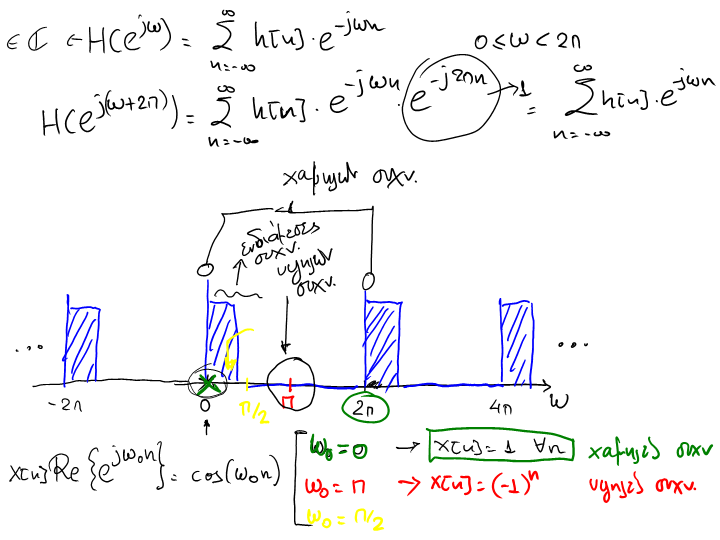 ∈ ℂ ← H(e^{jω}) = ∑_{n=-∞}^{∞} h[n] · e^{-jωn}   0 ≤ ω < 2π
H(e^{j(ω+2π)}) = ∑_{n=-∞}^{∞} h[n] · e^{-jωn} · e^{-j2πn} → 1 = ∑_{n=-∞}^{∞} h[n] · e^{-jωn}
χαμηλή συχν.
ενδιάμεσες
συχν.
υψηλών
συχν.
... ...
-2π 0 π/2 π 2π 4π ω
x[n] Re{e^{jω₀n}} = cos(ω₀n)
ω₀ = 0 → x[n] = 1 ∀n χαμηλές συχν
ω₀ = π → x[n] = (-1)^n υψηλές συχν.
ω₀ = π/2